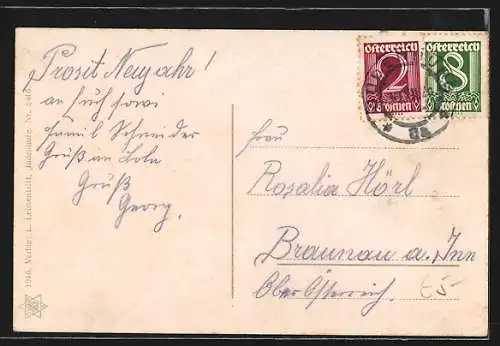 Prosit Neujahr!
an Euch sowi
Famil Schneider
Grüß an Lola
Gruß
Georg.
1916. Verlag: L. Leitenstadt, Judenburg. Nr.
Österreich
2
2 Groschen
Österreich
8
Groschen
8a
Frau
Rosalia Hörl
Braunau a. Inn
Oberösterreich.
€5-